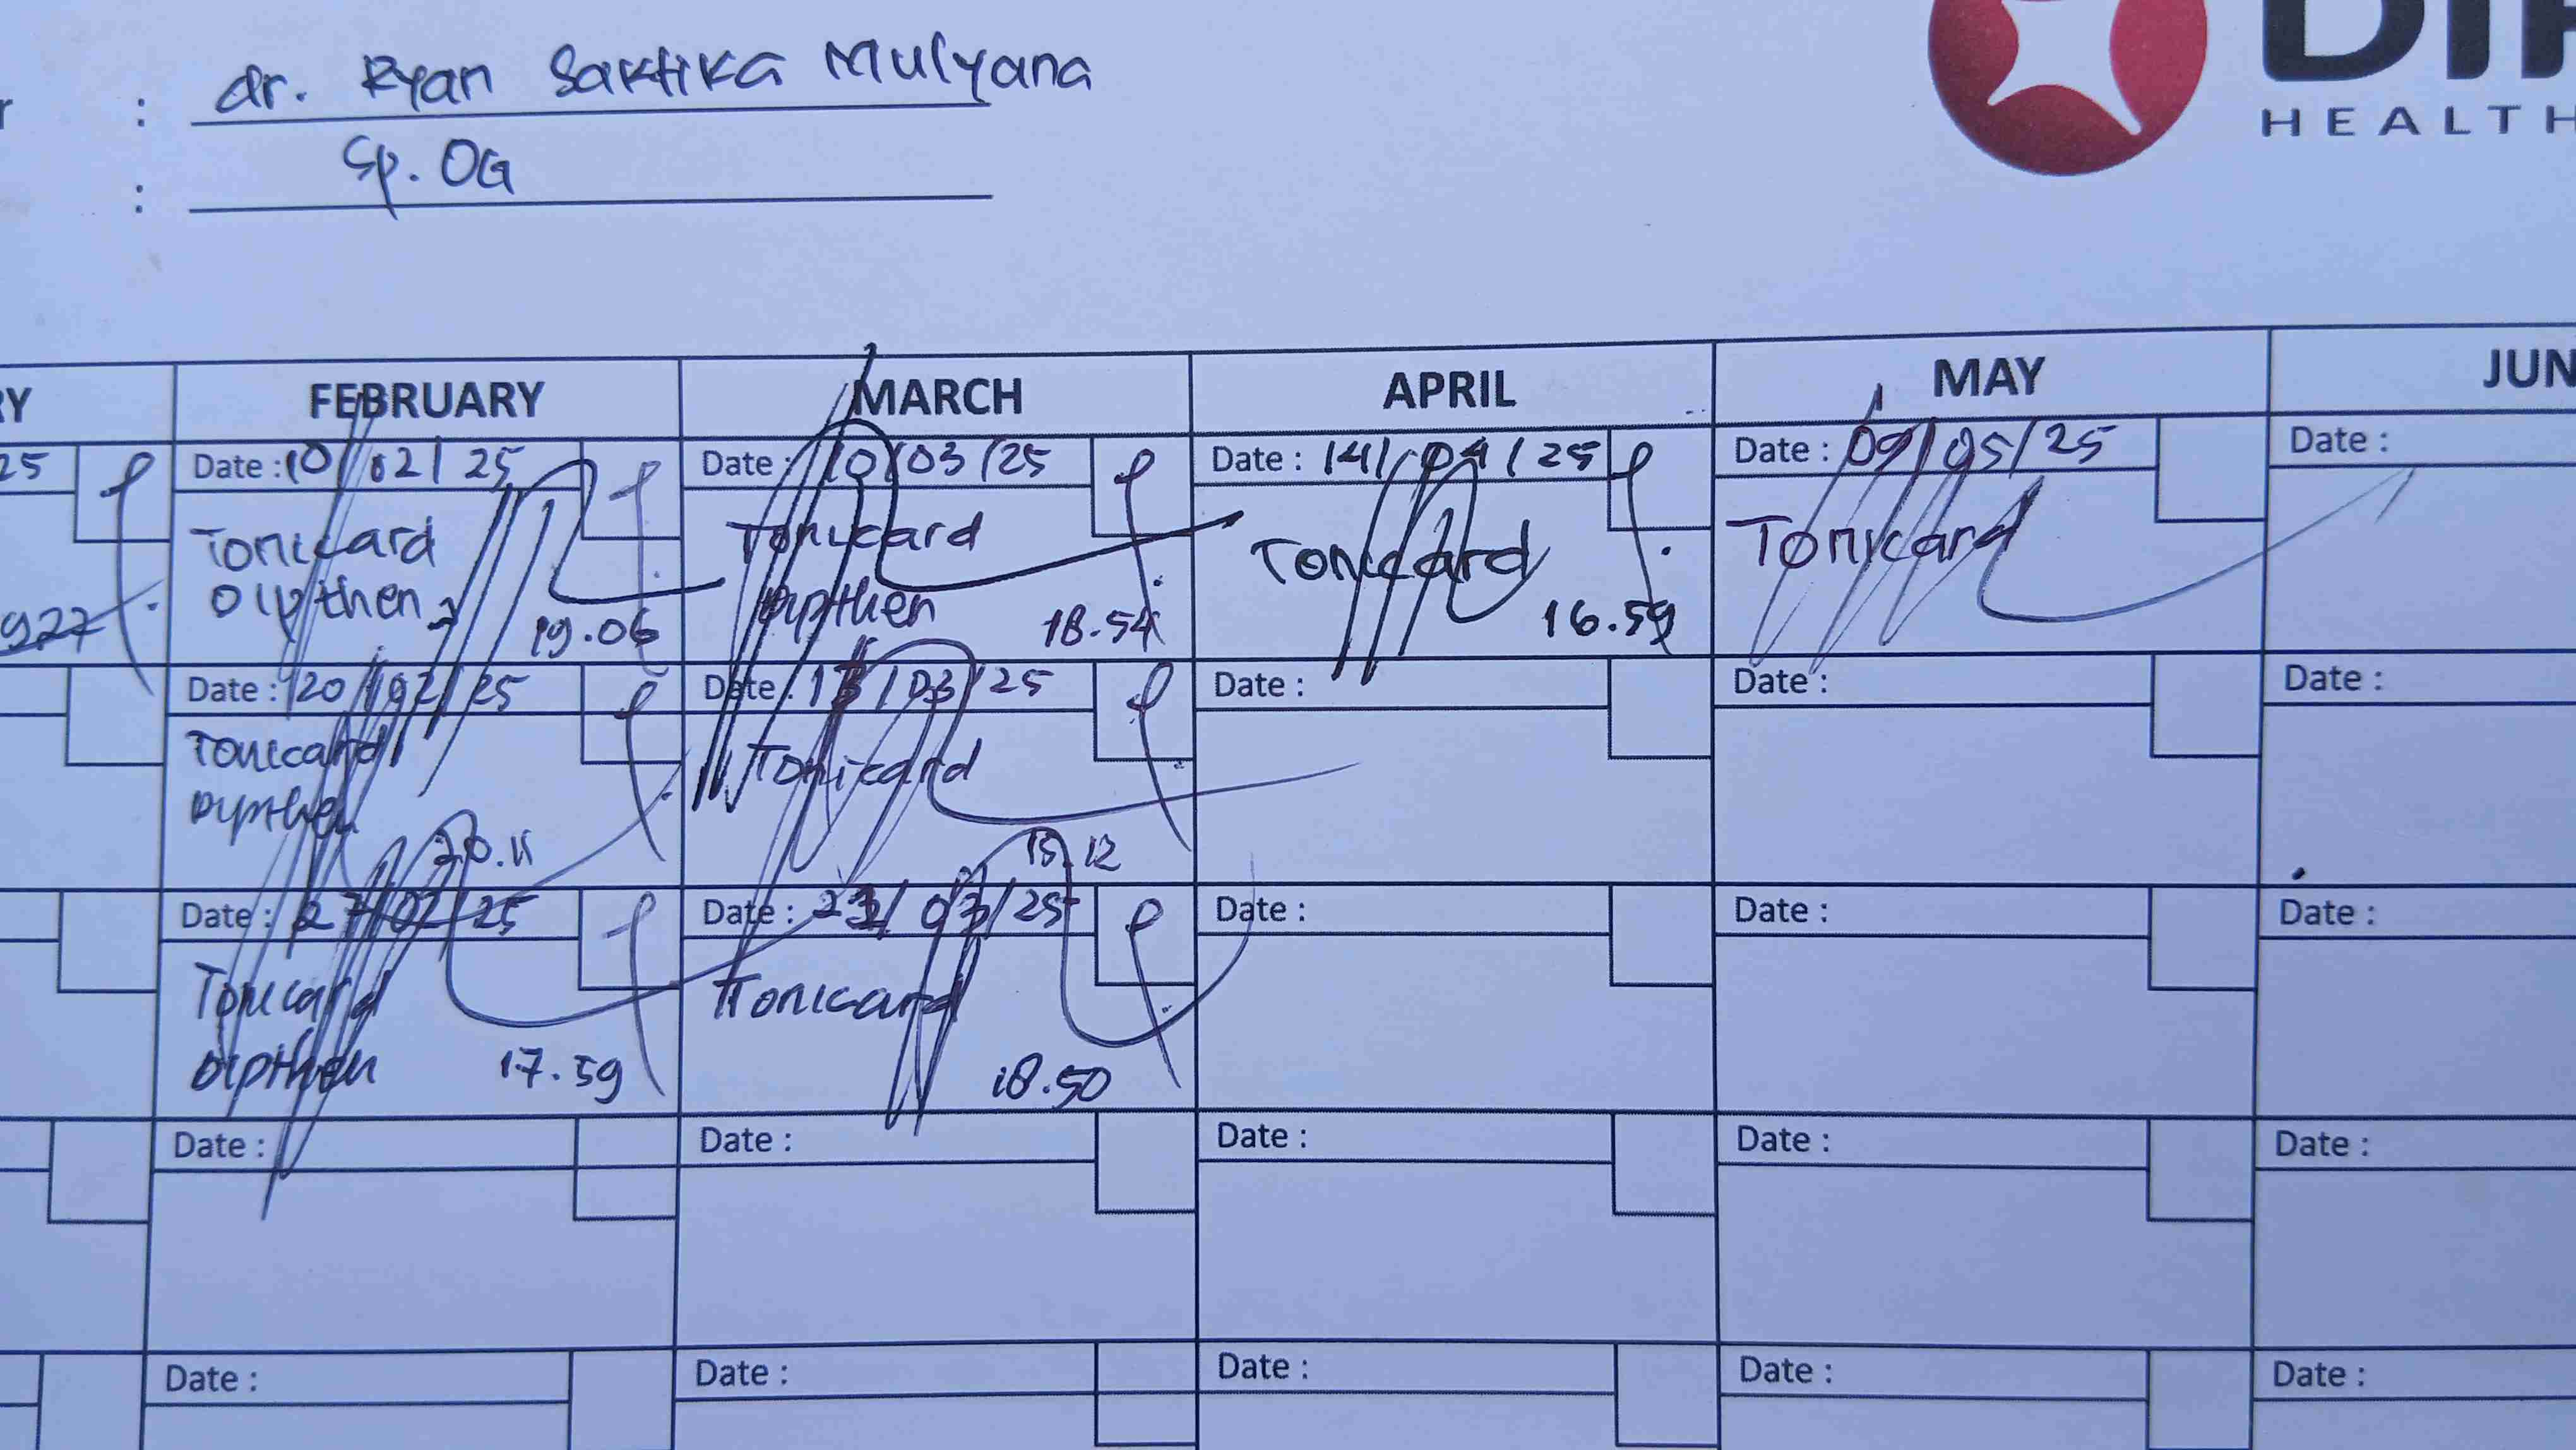 : dr. Ryan Saktika Mulyana
: Sp. OG
HEALTH
FEBRUARY MARCH APRIL MAY JUN
25 Date : 10/02/25 Date : 10/03/25 Date : 14/04/25 Date : 09/05/25 Date :
Tonicard Tonicard Tonicard Tonicard
927 19.06 18.54 16.59
Date : 20/02/25 Date : /03/25 Date : Date : Date :
Tonicard Tonicard
20.11 15.12
Date : 27/02/25 Date : /25 Date : Date : Date :
Tonicard Tonicard
17.59 18.50
Date : Date : Date : Date : Date :
Date : Date : Date : Date : Date :